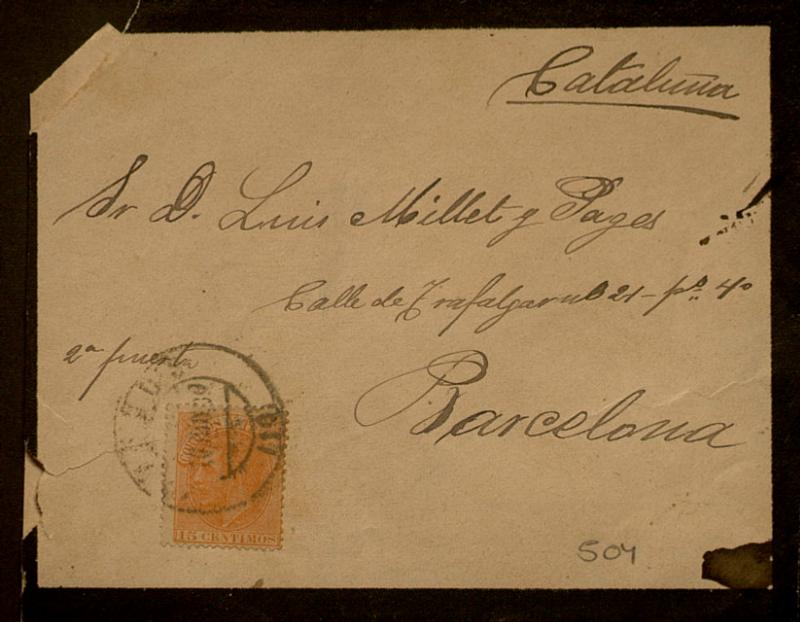 Cataluña
Sr D. Luis Millet y Pages
Calle de Trafalgar 21 - pº 4º
2ª puerta
Barcelona
15 CENTIMOS
504